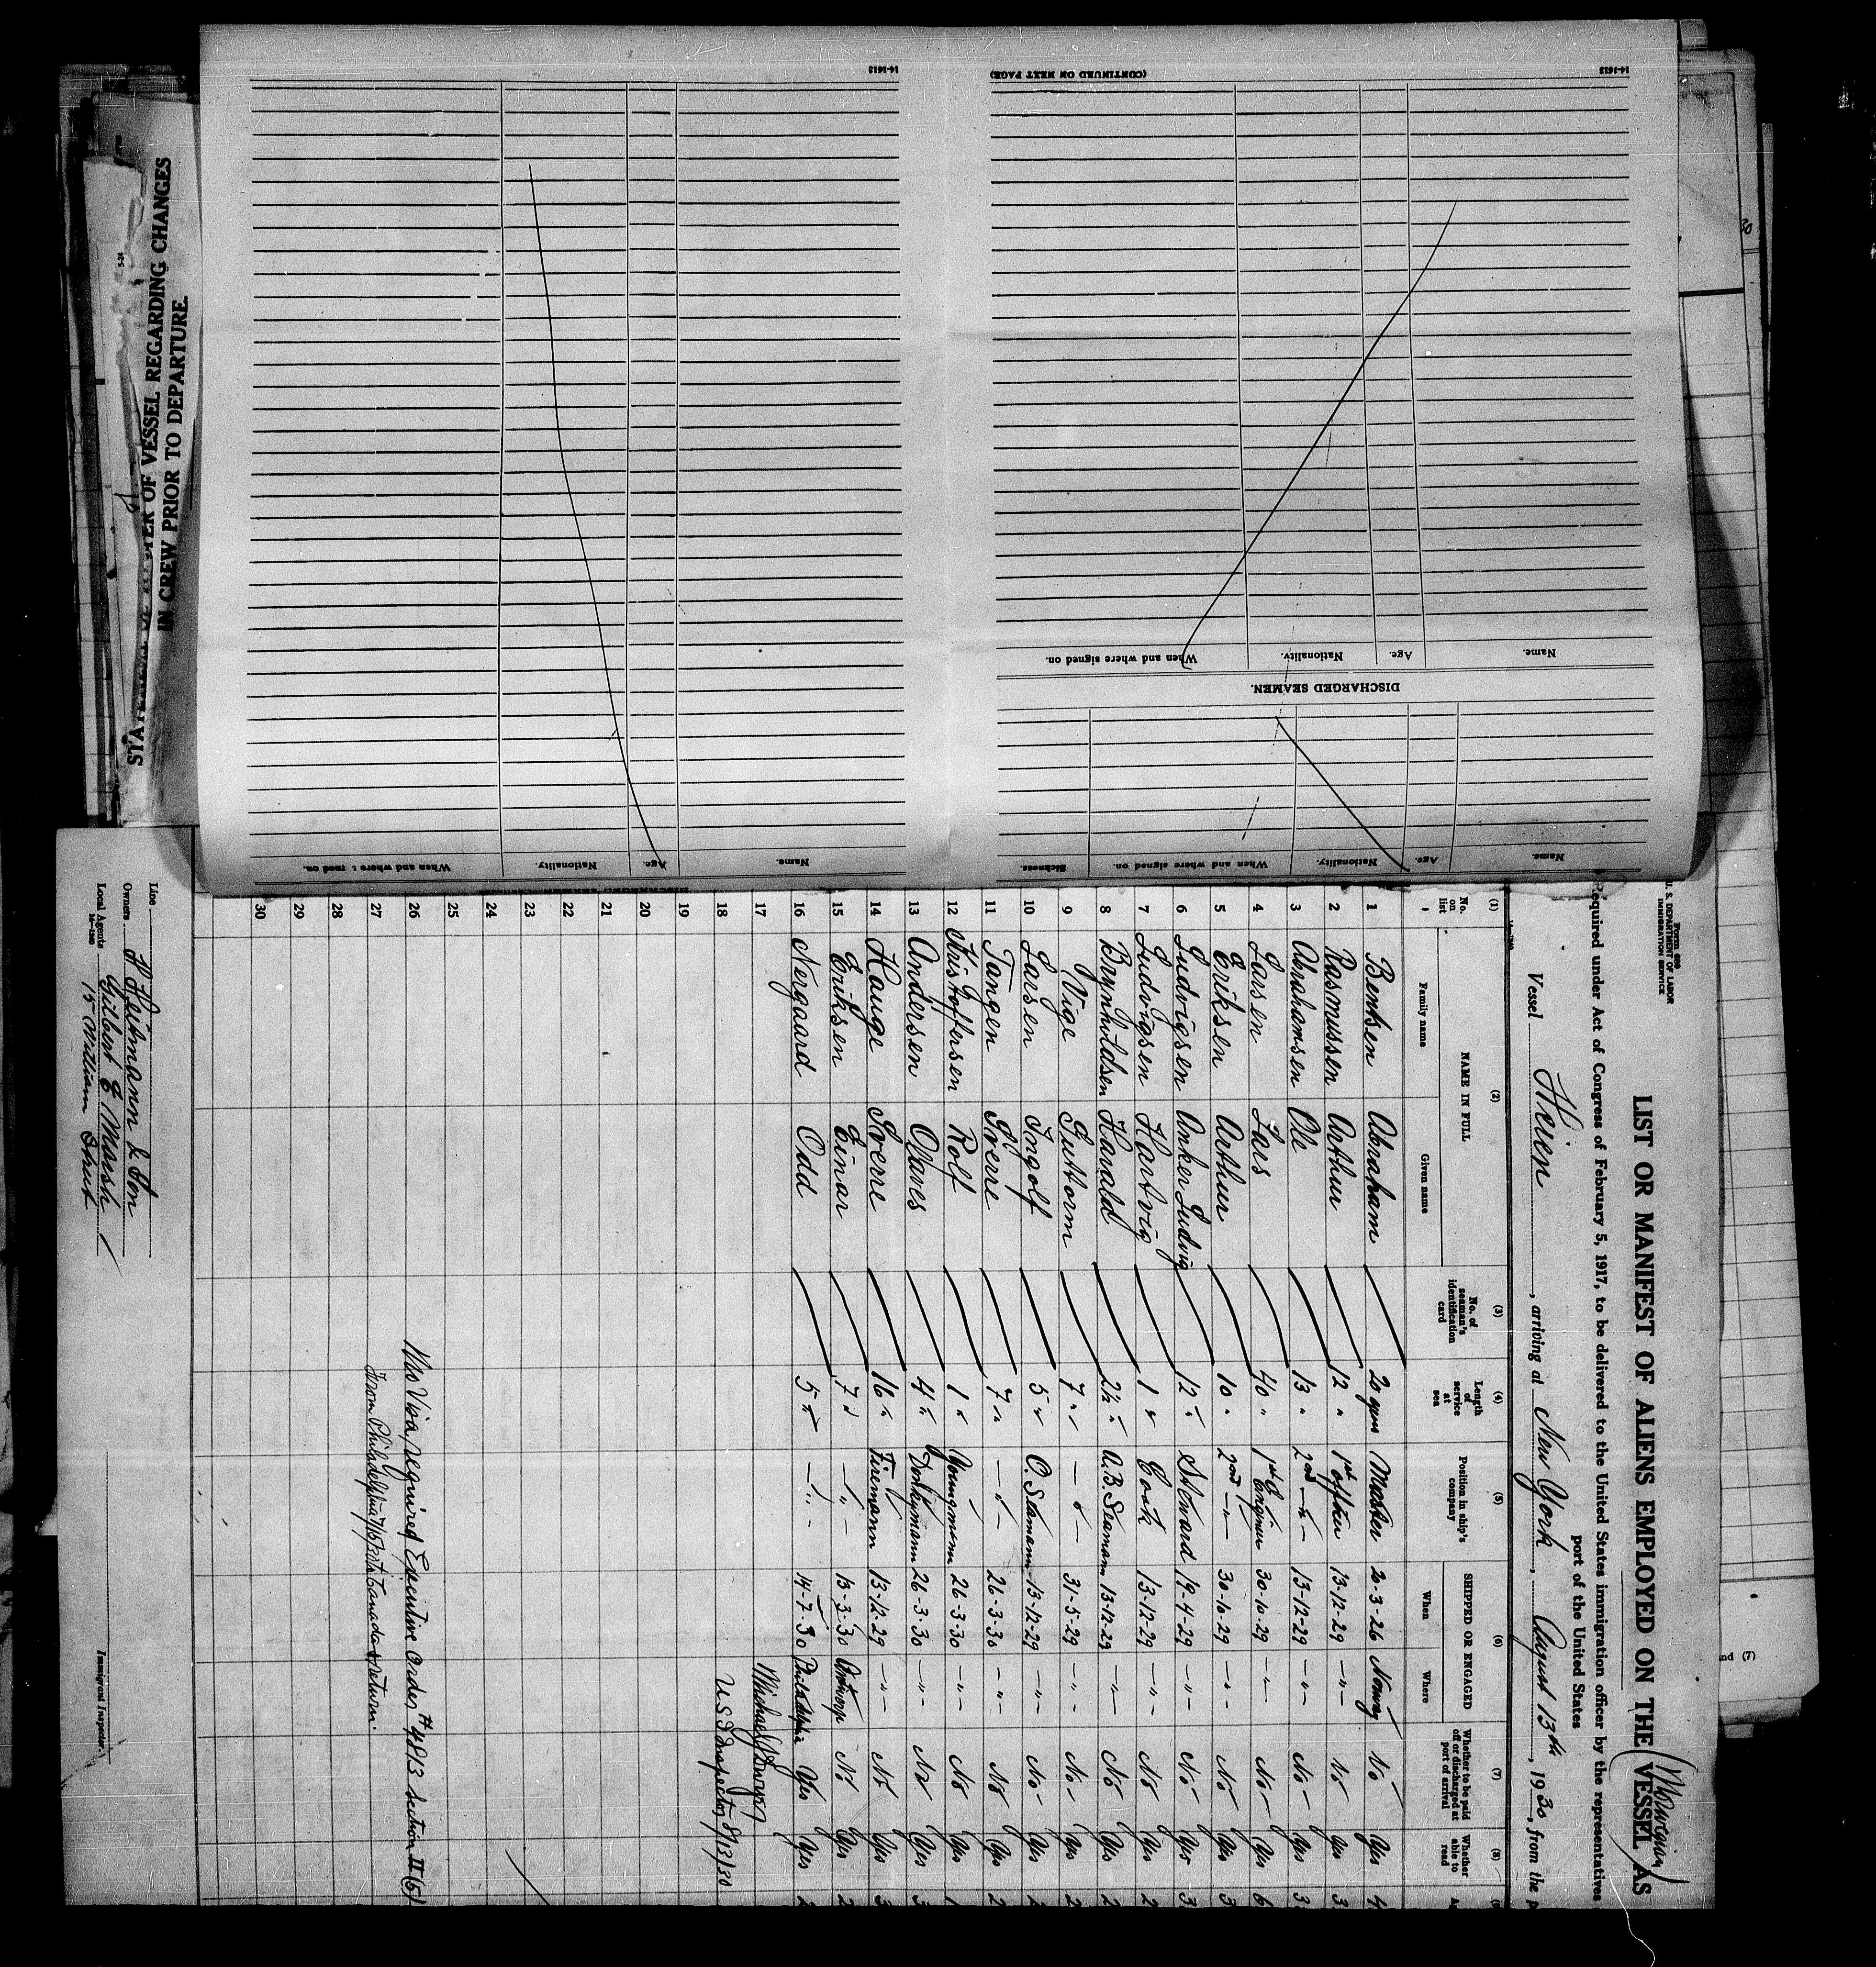 14-1613
(CONTINUED ON NEXT PAGE)
14-1613
Name.
Age.
Nationality.
When and where signed on.
DISCHARGED SEAMEN.
Name.
Age.
Nationality.
When and where signed on.
Sickness.
Name.
Age.
Nationality.
When and where signed on.
OF VESSEL REGARDING CHANGES
IN CREW PRIOR TO DEPARTURE.
Form 680
U. S. DEPARTMENT OF LABOR
IMMIGRATION SERVICE
(Norwegian)
LIST OR MANIFEST OF ALIENS EMPLOYED ON THE VESSEL AS
Required under Act of Congress of February 5, 1917, to be delivered to the United States immigration officer by the representatives
port of the United States
Vessel Heien, arriving at New York, August 13th, 1930, from the p
(1) (2) (3) (4) (5) (6) (7) (8)
No. on list NAME IN FULL No. of seaman's identification card Length of service at sea Position in ship's company SHIPPED OR ENGAGED Whether to be paid off or discharged at port of arrival Whether able to read
Family name Given name When Where
1 Bentsen Abraham 20 years Master 20-3-26 Norway No Yes 4
2 Rasmussen Arthur 12 " 1st officer 13-12-29 -"- No Yes 3
3 Abrahamsen Ole 13 " 2nd -"- 13-12-29 -"- No Yes 3
4 Larsen Lars 40 " 1st Engineer 30-10-29 -"- No Yes 6
5 Eriksen Arthur 10 " 2nd -"- 30-10-29 -"- No Yes 3
6 Ludvigsen Anker Ludvig 12 " Steward 19-4-29 -"- No Yes 3
7 Ludvigsen Hartvig 1 " Cook 13-12-29 -"- No Yes 2
8 Brynhildsen Harald 2½ " A.B. Seaman 13-12-29 -"- No Yes 2
9 Vige Guttorm 7 " -"- 31-5-29 -"- No Yes 2
10 Larsen Ingolf 5 " O. Seamann 13-12-29 -"- No Yes 2
11 Tangen Sverre 7 " -"- 26-3-30 -"- No Yes 2
12 Kristoffersen Rolf 1 " Youngmann 26-3-30 -"- No Yes 1
13 Andersen Olaves 4 " Donkymann 26-3-30 -"- No Yes 3
14 Hauge Sverre 16 " Firemann 13-12-29 -"- No Yes 3
15 Eriksen Einar 7 " -"- 13-3-30 Antwerp No Yes 2
16 Nergaard Odd 5 " -"- 14-7-30 Philadelphia Yes Yes 2
17 Michael J
18 U S Inspector 8/13/30
19
20
21
22
23
24
25
26 No Visa required Executive Order #4813 Section II (6)
27 From Philadelphia 7/15/30 to Canada & return.
28
29
30
Line
Owners H Heitmann & Son
Local Agents Gilbert & Marsh
15 William Street
Immigrant Inspector.
nd (7)